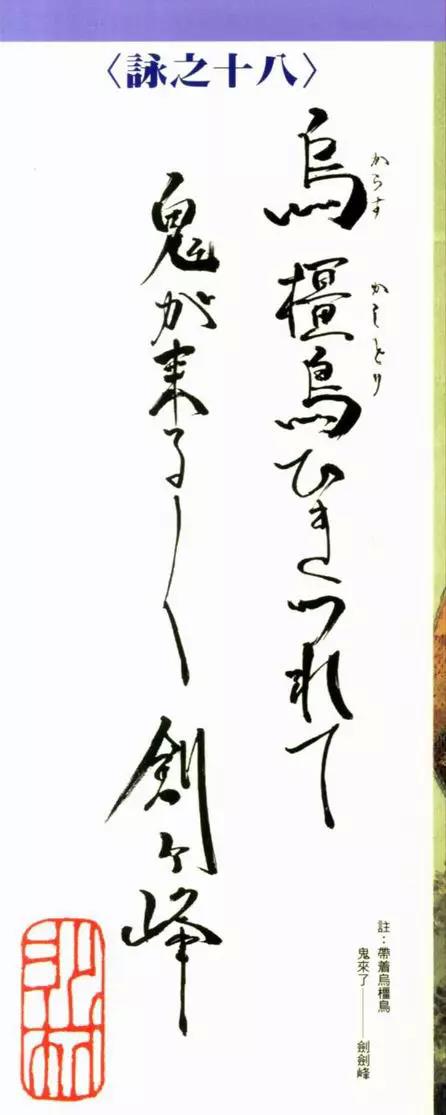 〈詠之十八〉
からす かしどり
烏 橿鳥ひきつれて
鬼が来る 剣ヶ峰
註：帶着烏橿鳥
鬼來了——劍劍峰